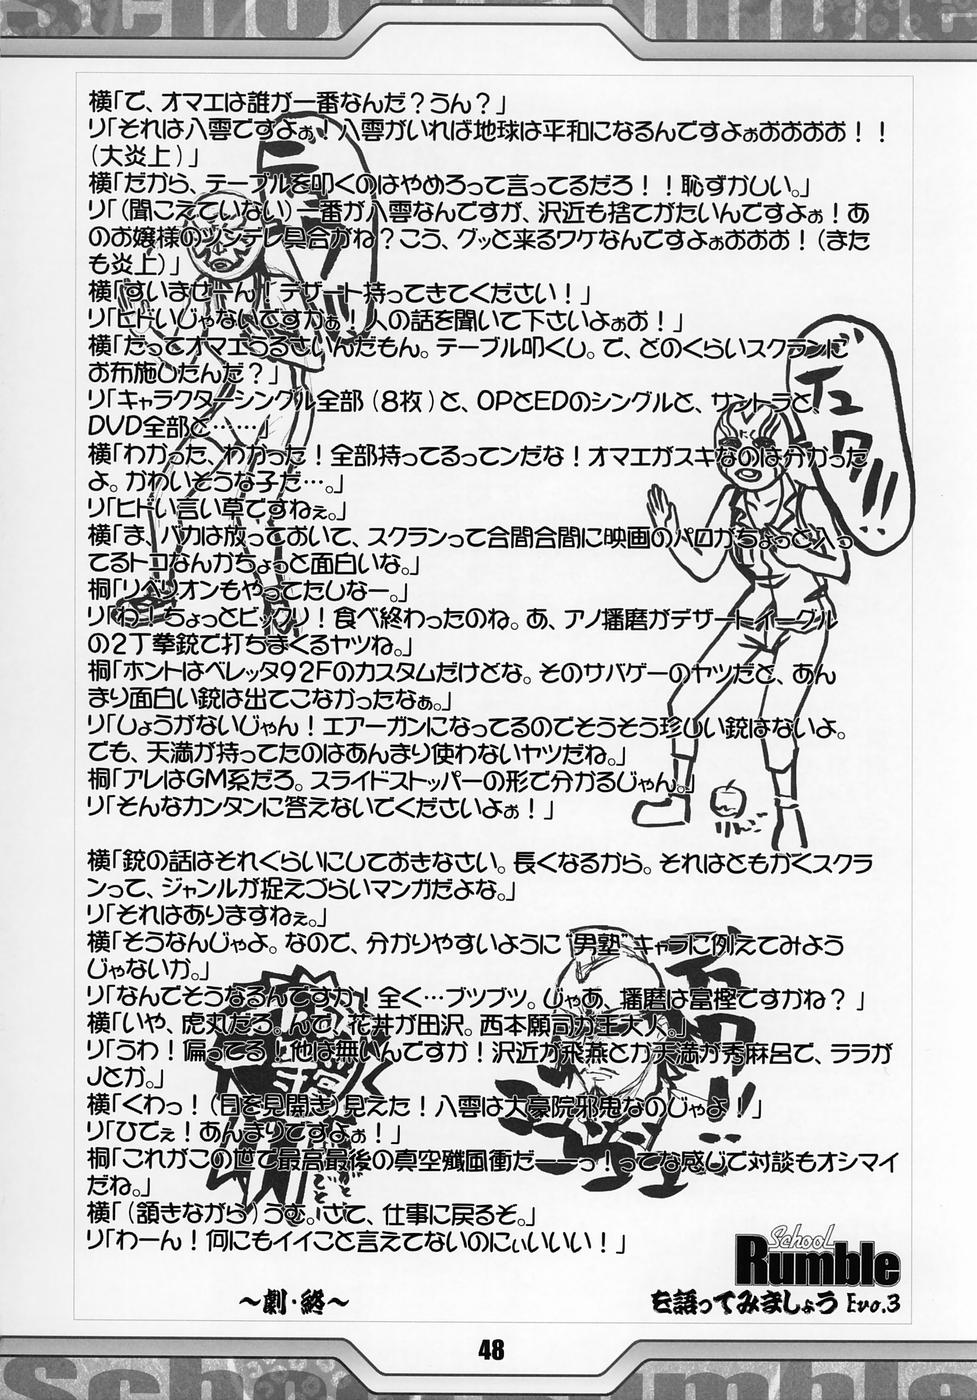 School Rumble
横「で、オマエは誰が一番なんだ？うん？」
リ「それは八雲ですよぉ！八雲がいれば地球は平和になるんですよぉおおおお！！
(大炎上)」
横「だから、テーブルを叩くのはやめろって言ってるだろ！！恥ずかしい。」
リ「(聞こえていない)一番が八雲なんですが、沢近も捨てがたいんですよぉ！あ
のお嬢様のツンデレ具合がね？こう、グッと来るワケなんですよぉおおお！(また
も炎上)」
横「すいませーん！デザート持ってきてください！」
リ「ヒドいじゃないですかぁ！人の話を聞いて下さいよぉお！」
横「だってオマエうるさいんだもん。テーブル叩くし。で、どのくらいスクランに
お布施したんだ？」
リ「キャラクターシングル全部(8枚)と、OPとEDのシングルと、サントラと、
DVD全部と……」
横「わかった、わかった！全部持ってるってンだな！オマエがスキなのは分かった
よ。かわいそうな子だ…。」
リ「ヒドい言い草ですねぇ。」
横「ま、バカは放っておいて、スクランって合間合間に映画のパロがちょっと入っ
てるトコなんかちょっと面白いな。」
桐「リベリオンもやってたしなー。」
リ「わ！ちょっとビックリ！食べ終わったのね。あ、アノ播磨がデザートイーグル
の2丁拳銃で打ちまくるヤツね。」
桐「ホントはベレッタ92Fのカスタムだけどな。そのサバゲーのヤツだと、あん
まり面白い銃は出てこなかったなぁ。」
リ「しょうがないじゃん！エアーガンになってるのでそうそう珍しい銃はないよ。
でも、天満が持ってたのはあんまり使わないヤツだね。」
桐「アレはGM系だろ。スライドストッパーの形で分かるじゃん。」
リ「そんなカンタンに答えないでくださいよぉ！」
横「銃の話はそれぐらいにしておきなさい。長くなるから。それはともかくスクラ
ンって、ジャンルが捉えづらいマンガだよな。」
リ「それはありますねぇ。」
横「そうなんじゃよ。なので、分かりやすいように“男塾”キャラに例えてみよう
じゃないか。」
リ「なんでそうなるんですか！全く…ブツブツ。じゃあ、播磨は富樫ですかね？」
横「いや、虎丸だろ。んで、花井が田沢。西本願司が王大人。」
リ「うわ！偏ってる！他は無いんですか！沢近が飛燕とか天満が秀麻呂で、ララが
Jとか。」
横「くわっ！(目を見開き)見えた！八雲は大豪院邪鬼なのじゃよ！」
リ「ひでぇ！あんまりですよぉ！」
桐「これがこの世で最高最後の真空殲風衝だーーっ！ってな感じで対談もオシマイ
だね。」
横「(頷きながら)うむ。さて、仕事に戻るぞ。」
リ「わーん！何にもイイこと言えてないのにぃいいい！」
〜劇・終〜
School
Rumble
を語ってみましょう Evo.3
りんご
にく
48
School Rumble